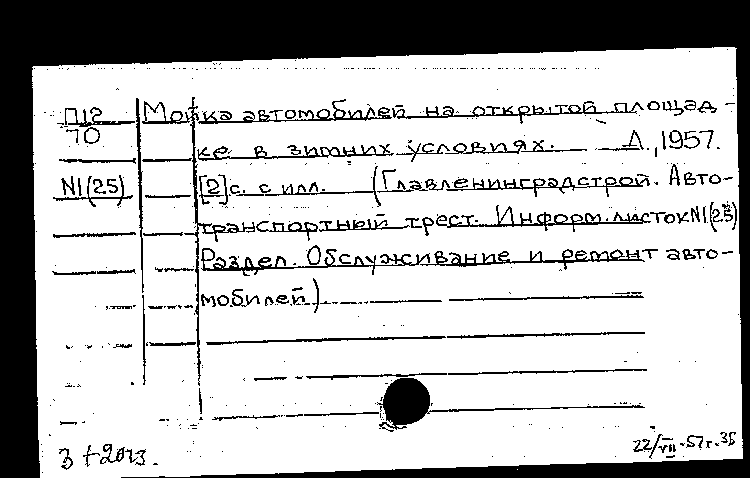 П12 Мойка автомобилей на открытой площад-
70
ке в зимних условиях. Л., 1957.
N1(25) [2] с. с илл. (Главленинградстрой. Авто-
транспортный трест. Информ. листок N1(25)
Раздел. Обслуживание и ремонт авто-
мобилей)
22/VII-57г.